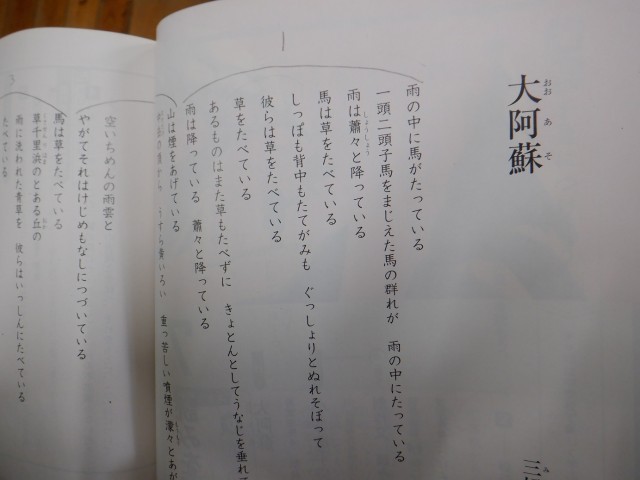 大阿蘇
おお あ そ
三
み
1
雨の中に馬がたっている
一頭二頭子馬をまじえた馬の群れが 雨の中にたっている
雨は蕭々と降っている
しょうしょう
馬は草をたべている
しっぽも背中もたてがみも ぐっしょりとぬれそぼって
彼らは草をたべている
草をたべている
あるものはまた草もたべずに きょとんとしてうなじを垂れて
雨は降っている 蕭々と降っている
山は煙をあげている
うすら黄いろい 重っ苦しい噴煙が濛々とあが
もうもう
空いちめんの雨雲と
やがてそれはけじめもなしにつづいている
馬は草をたべている
草千里浜のとある丘の
雨に洗われた青草を 彼らはいっしんにたべている
たべている